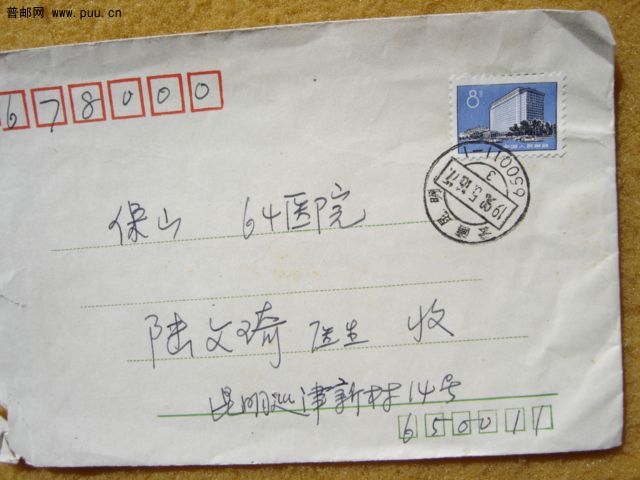 普邮网 www.puu.cn
678000
8分
中国人民邮政
650011-1
3
1990.5.16.17
云南昆明
保山 64医院
陆文琦 医生 收
昆明延津新村14号
650011